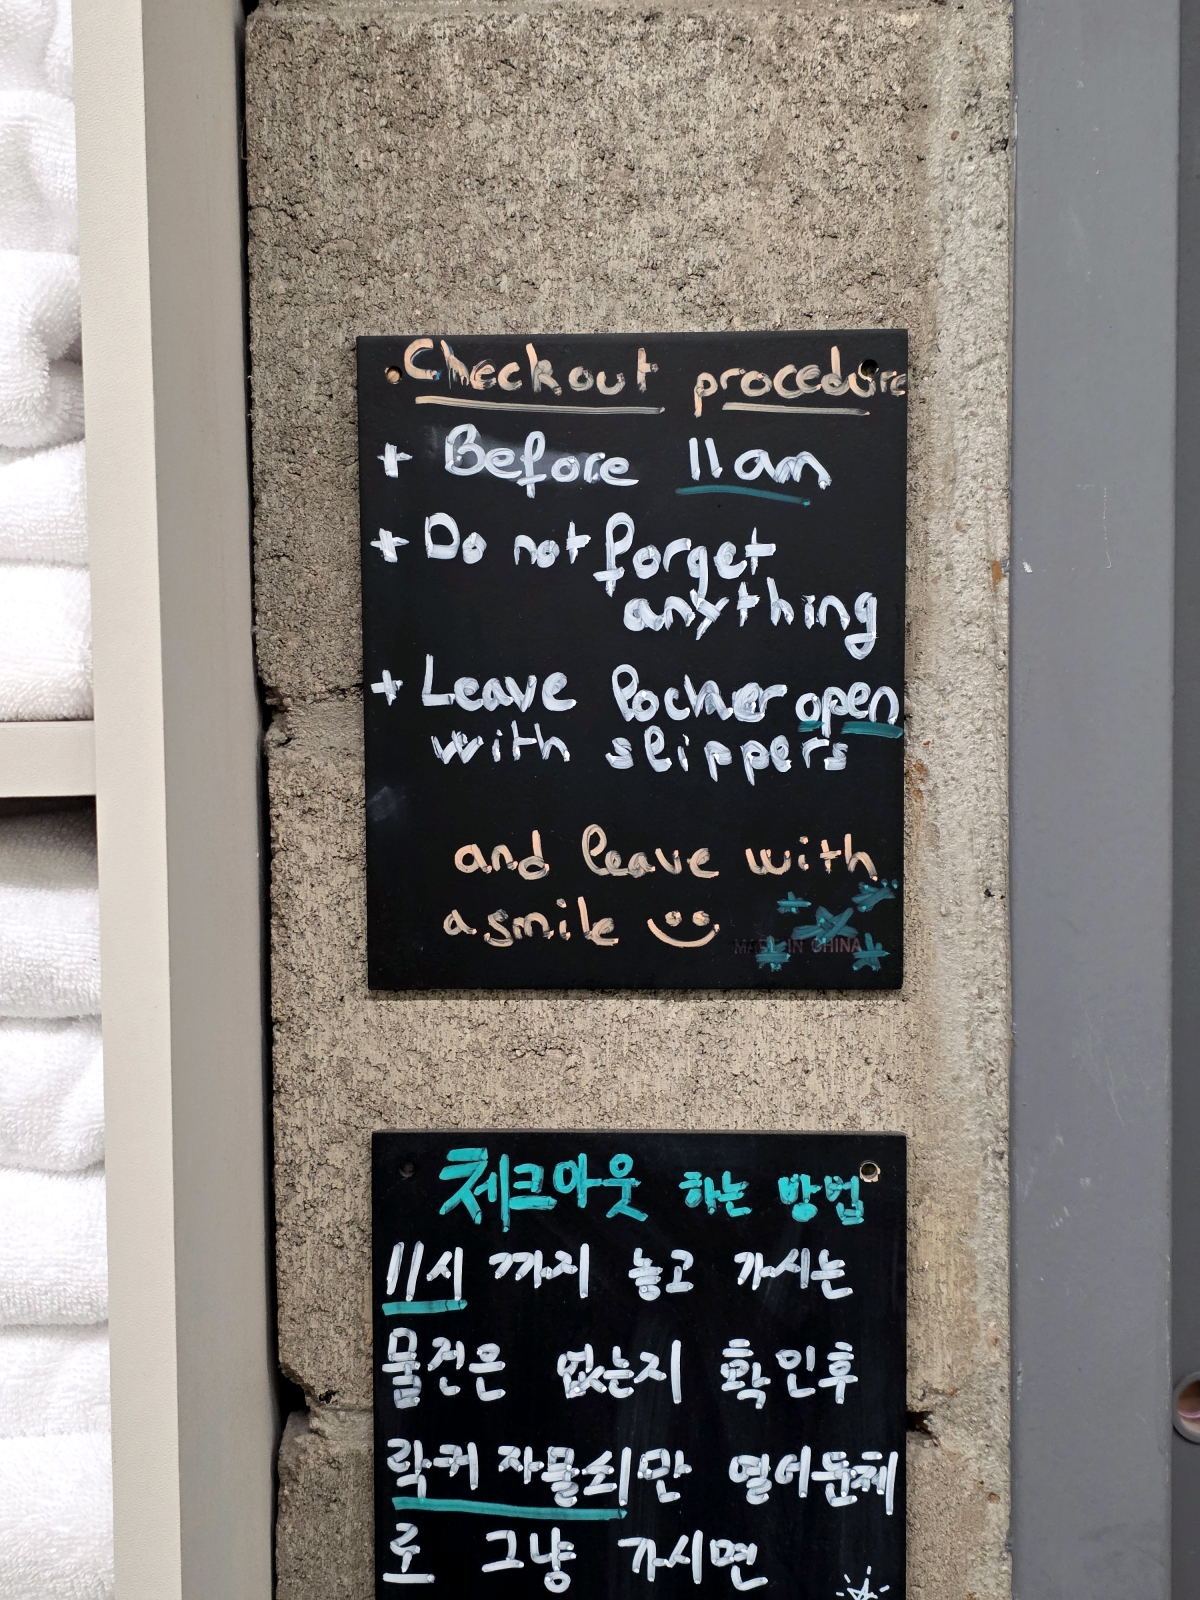 Checkout procedure
+ Before 11am
+ Do not forget
anything
+ Leave Locker open
with slippers
and leave with
a smile
MADE IN CHINA
체크아웃 하는 방법
11시 까지 놓고 가시는
물건은 없는지 확인후
락커 자물쇠만 열어둔채
로 그냥 가시면